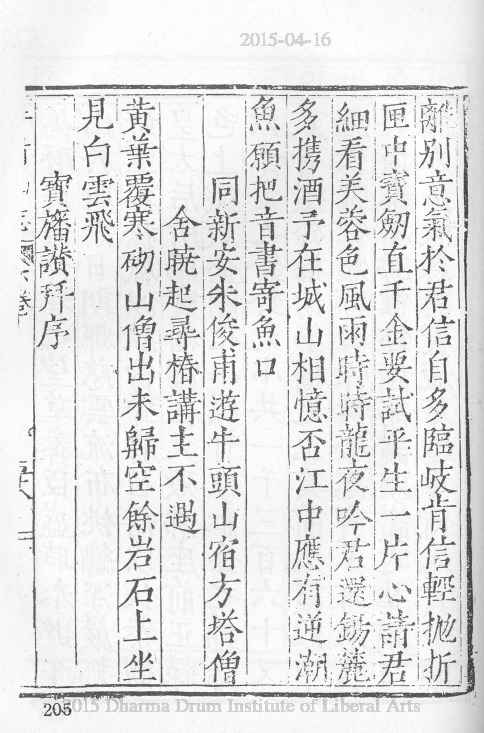 2015-04-16
離别意氣於君信自多臨岐肯信輕抛折
匣中寶劒直千金要試平生一片心請君
細看芙蓉色風雨時時龍夜吟君還錫麓
多攜酒予在城山相憶否江中應有逆潮
魚願把音書寄魚口
同新安朱俊甫遊牛頭山宿方塔僧
舍曉起尋椿講主不遇
黃葉覆寒砌山僧出未歸空餘岩石上坐
見白雲飛
寶旛讚并序
205
2015 Dharma Drum Institute of Liberal Arts